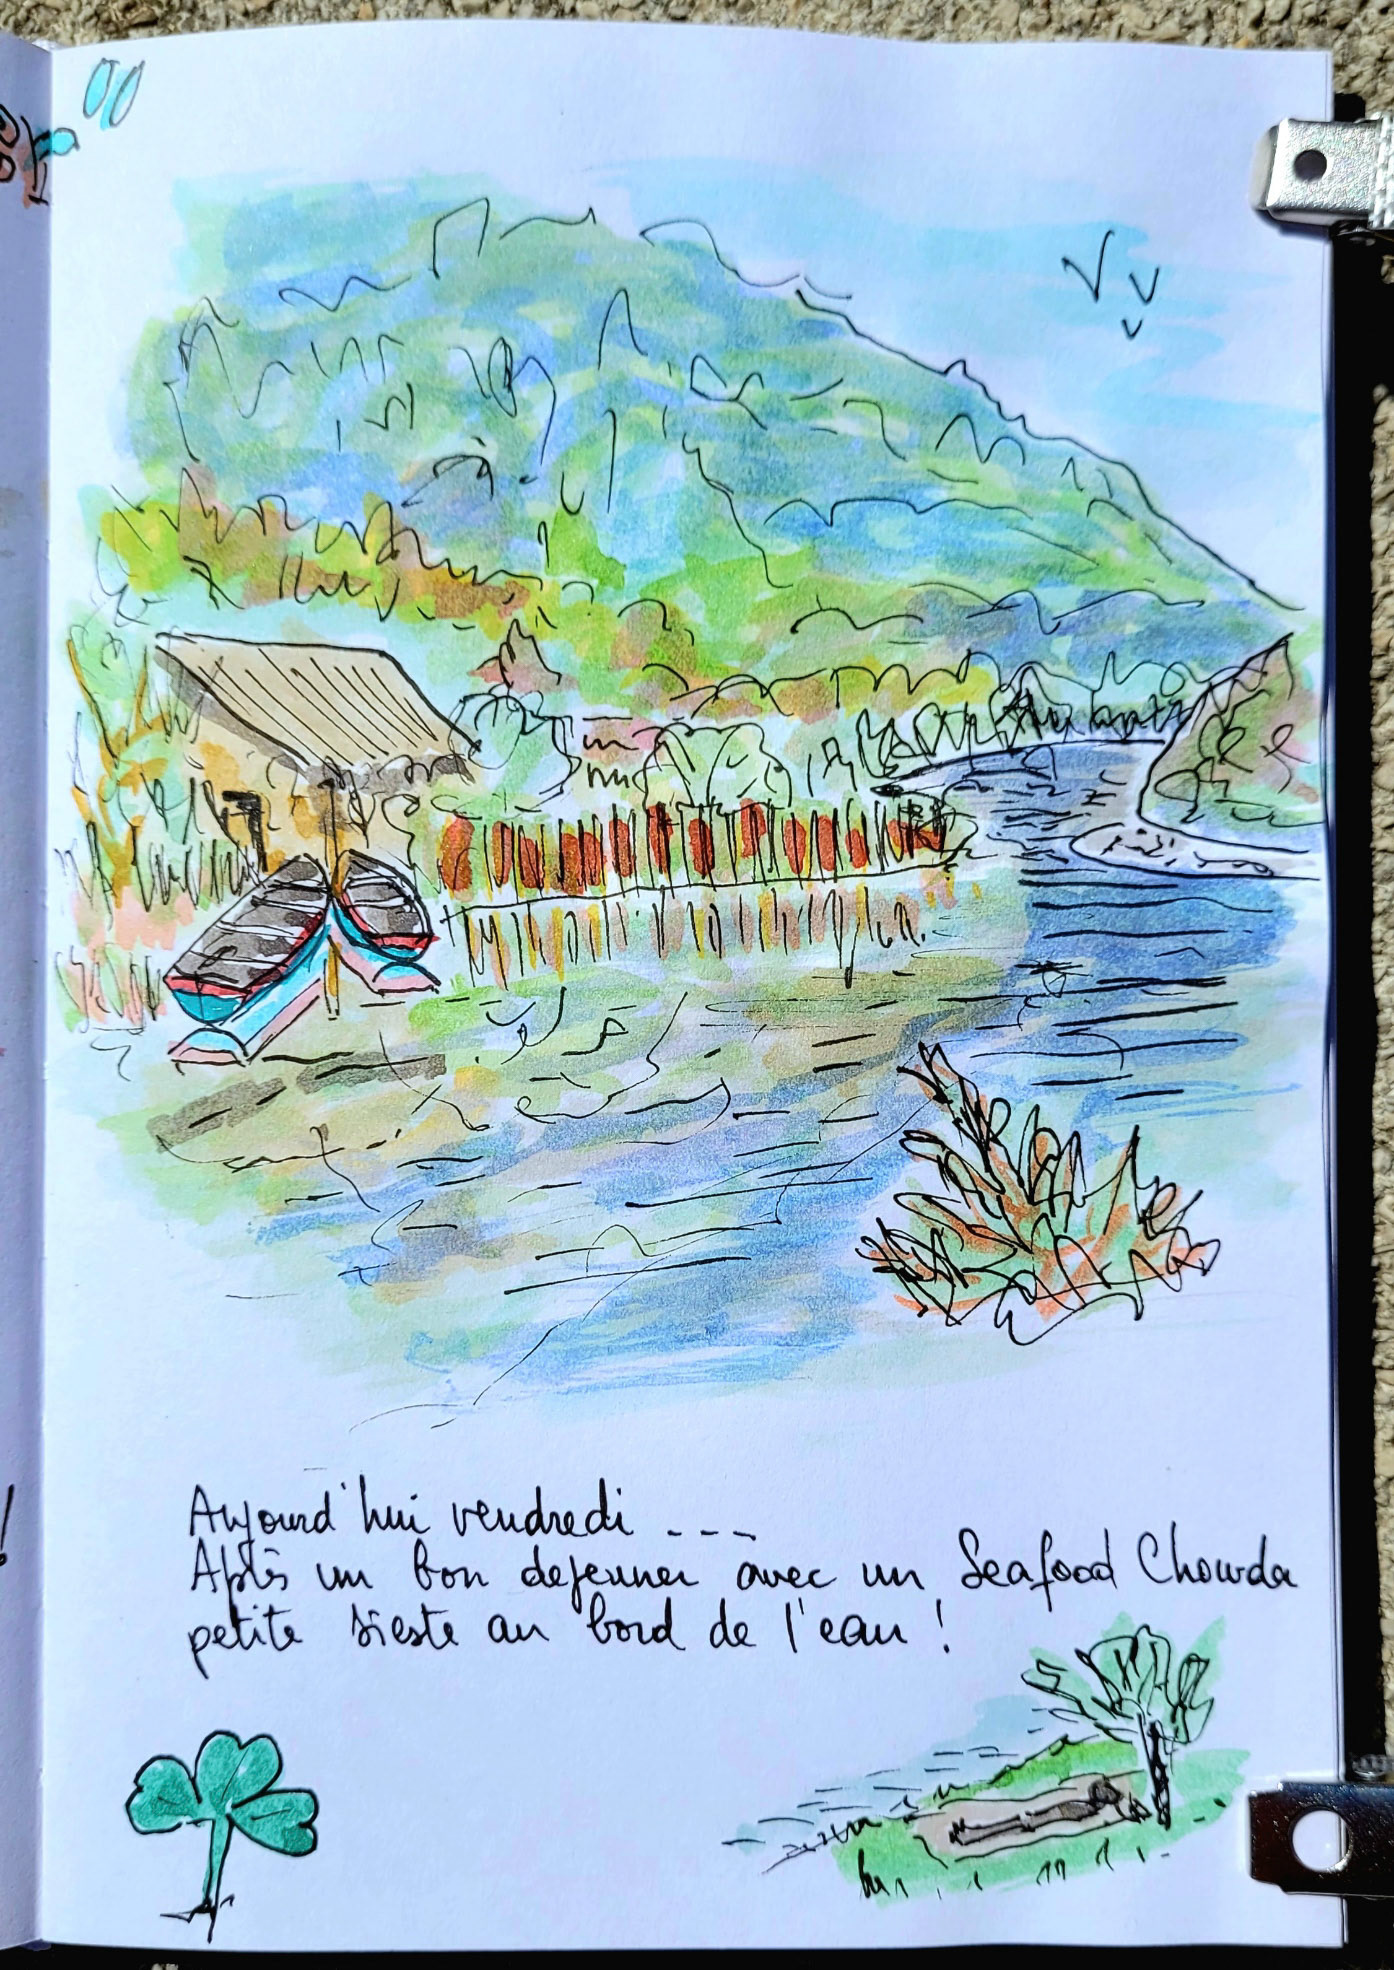 Aujourd'hui vendredi ---
Après un bon dejeuner avec un Seafood Chowda
petite sieste au bord de l'eau !